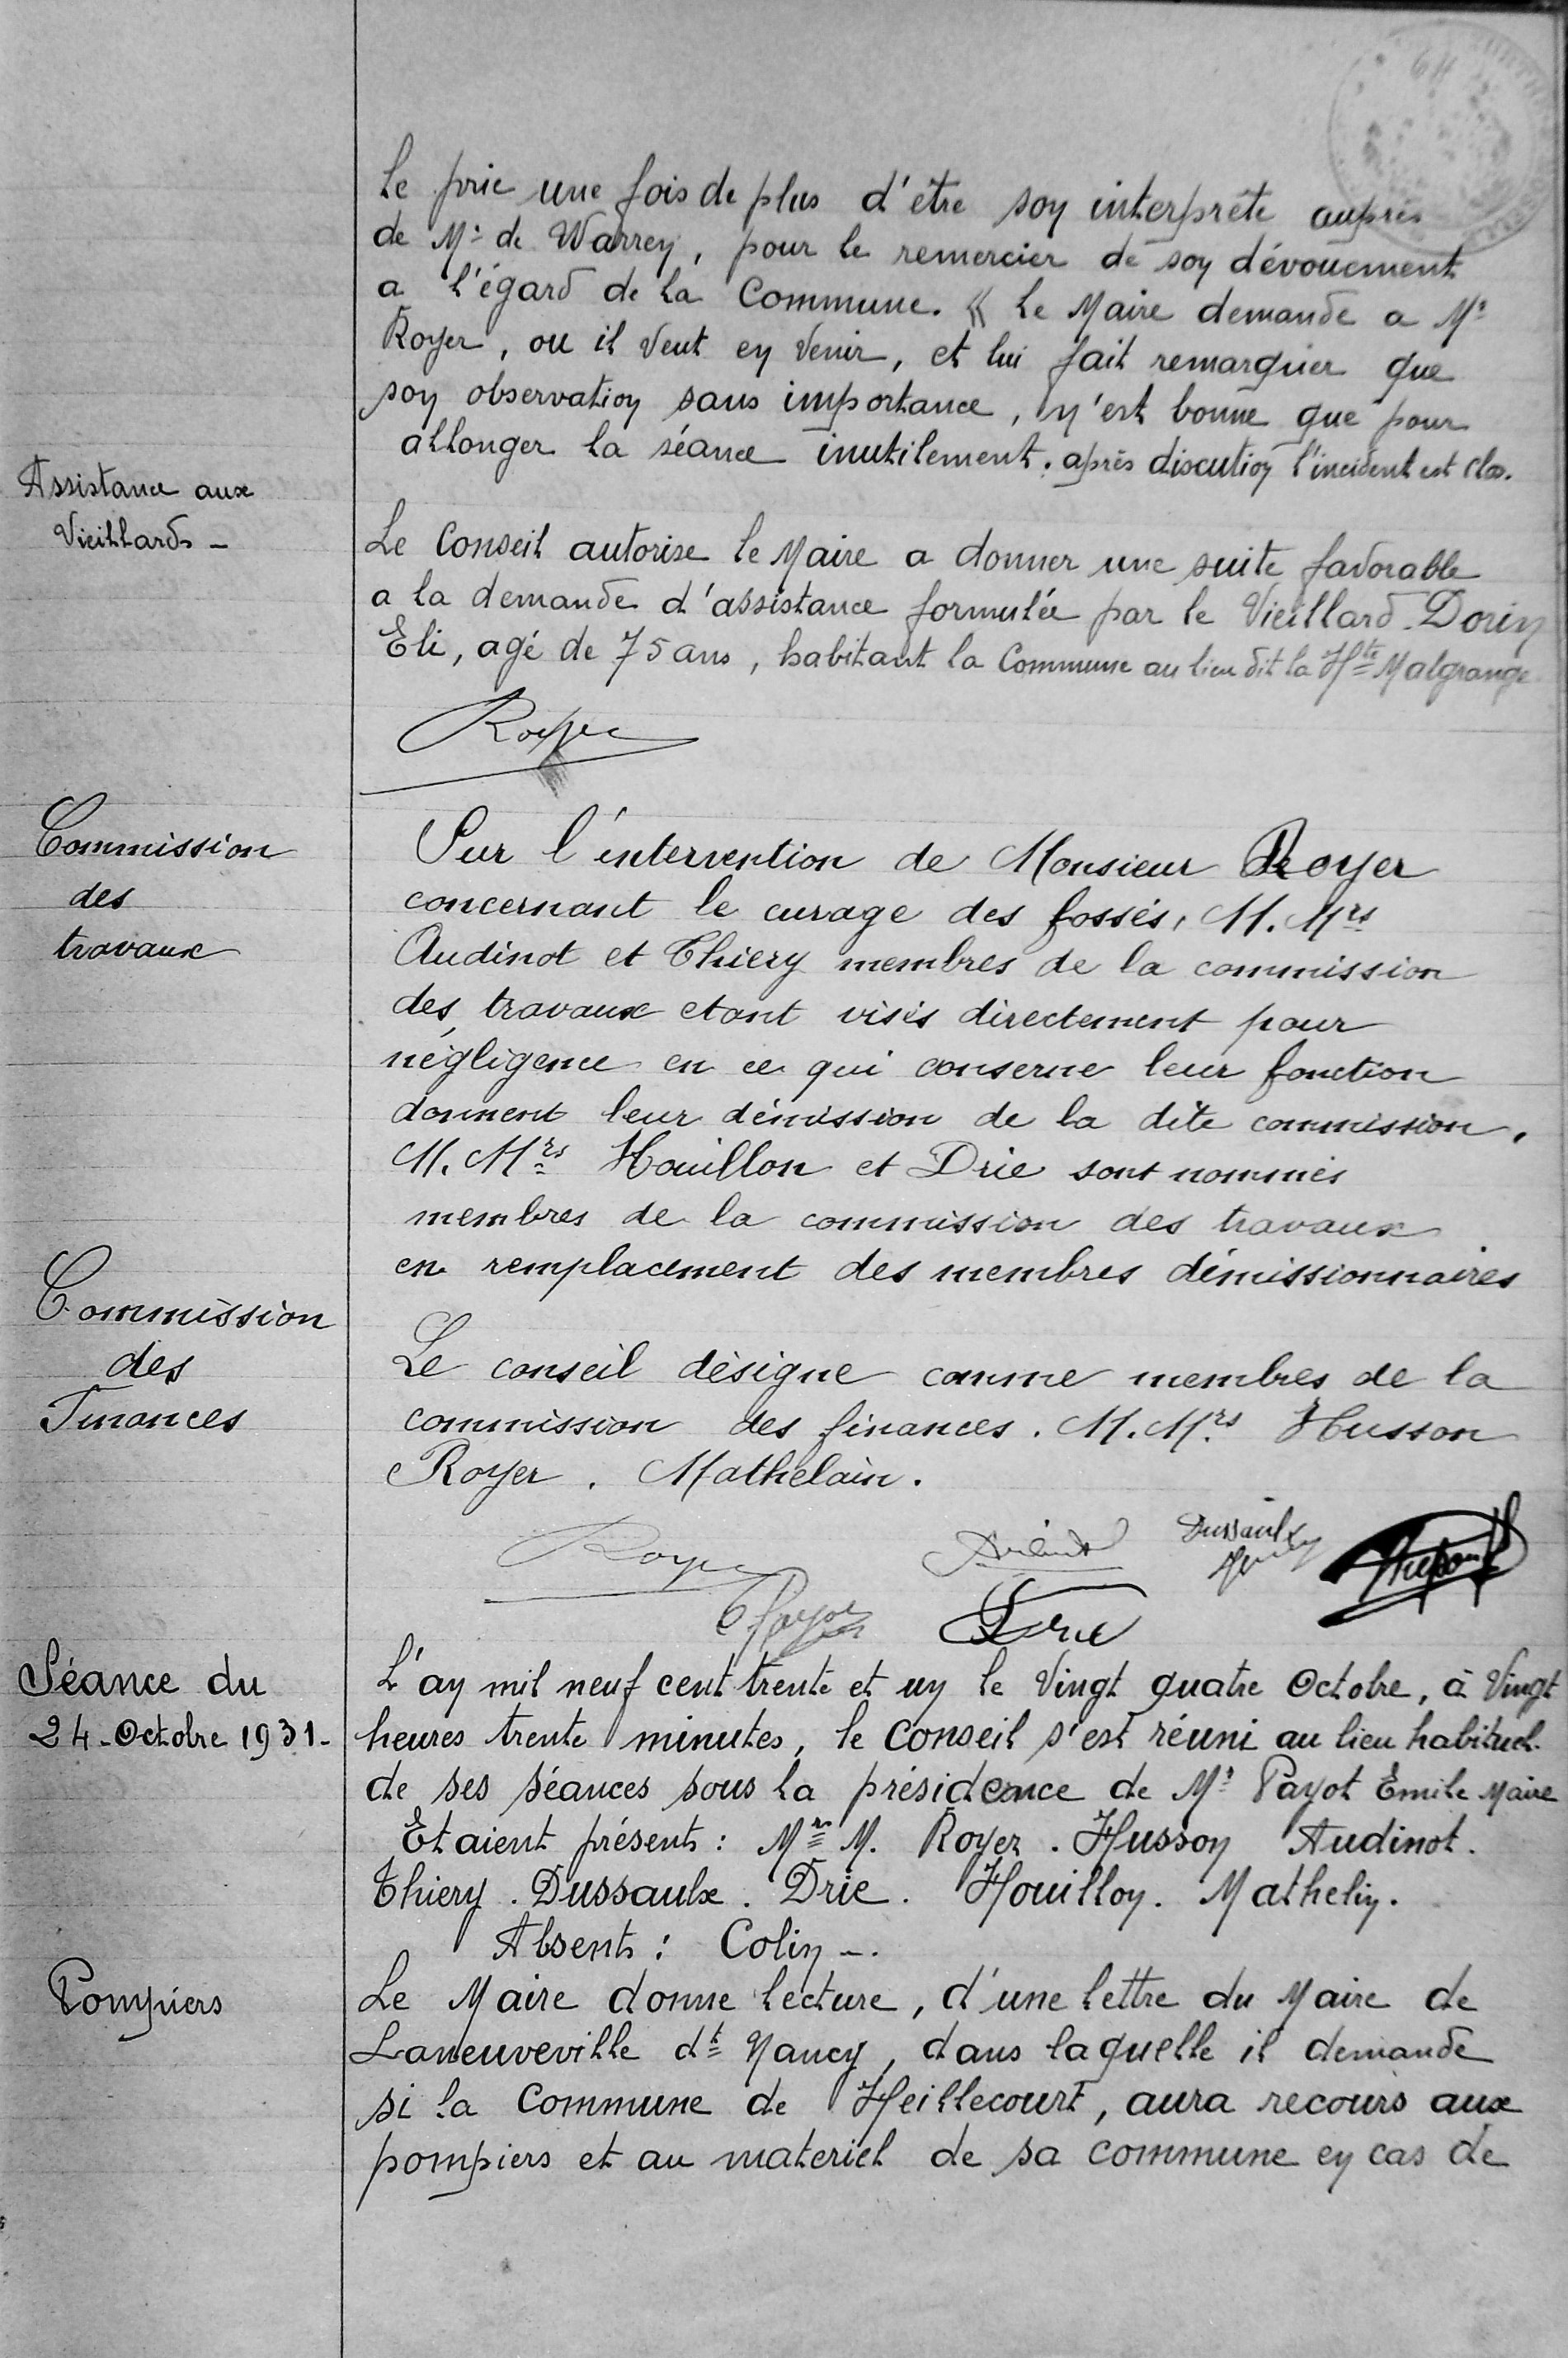 64
Le prie une fois de plus d'être son interprête auprès
de Mr de Warren, pour le remercier de son dévouement
a l'égard de la Commune. « Le Maire demande a Mr
Royer, ou il veut en venir, et lui fait remarquer que
son observation sans importance, n'est bonne que pour
allonger la séance inutilement. après discution l'incident est clos.
Assistance aux
Vieillards -
Le Conseil autorise le Maire a donner une suite favorable
a la demande d'assistance formulée par le Vieillard Dorin
Eli, agé de 75 ans, habitant la Commune au lieu dit la Hte Malgrange
Royer
Commission
des
travaux
Sur l'intervention de Monsieur Royer
concernant le curage des fossés, M. Mrs
Audinot et Thiery membres de la commission
des travaux etant visés directement pour
négligence en ce qui conserne leur fonction
donnent leur démission de la dite commission.
M. Mrs Houillon et Drie sont nommés
membres de la commission des travaux
en remplacement des membres démissionnaires
Commission
des
Finances
Le conseil désigne comme membres de la
commission des finances. M. Mrs Husson
Royer. Mathelain.
Royer
Dussaulx
Drie
Séance du
24 - Octobre 1931 -
L'an mil neuf cent trente et un le Vingt quatre Octobre, à Vingt
heures trente minutes, le Conseil s'est réuni au lieu habituel
de ses séances sous la présidence de Mr Payot Emile Maire
Etaient présents : Mrs M. Royer. Husson Audinot.
Thiery. Dussaulx. Drie. Houillon. Mathelin.
Absents : Colin -.
Pompiers
Le Maire donne lecture, d'une lettre du Maire de
Laneuveville dt Nancy, dans laquelle il demande
si la Commune de Heillecourt, aura recours aux
pompiers et au materiel de sa commune en cas de